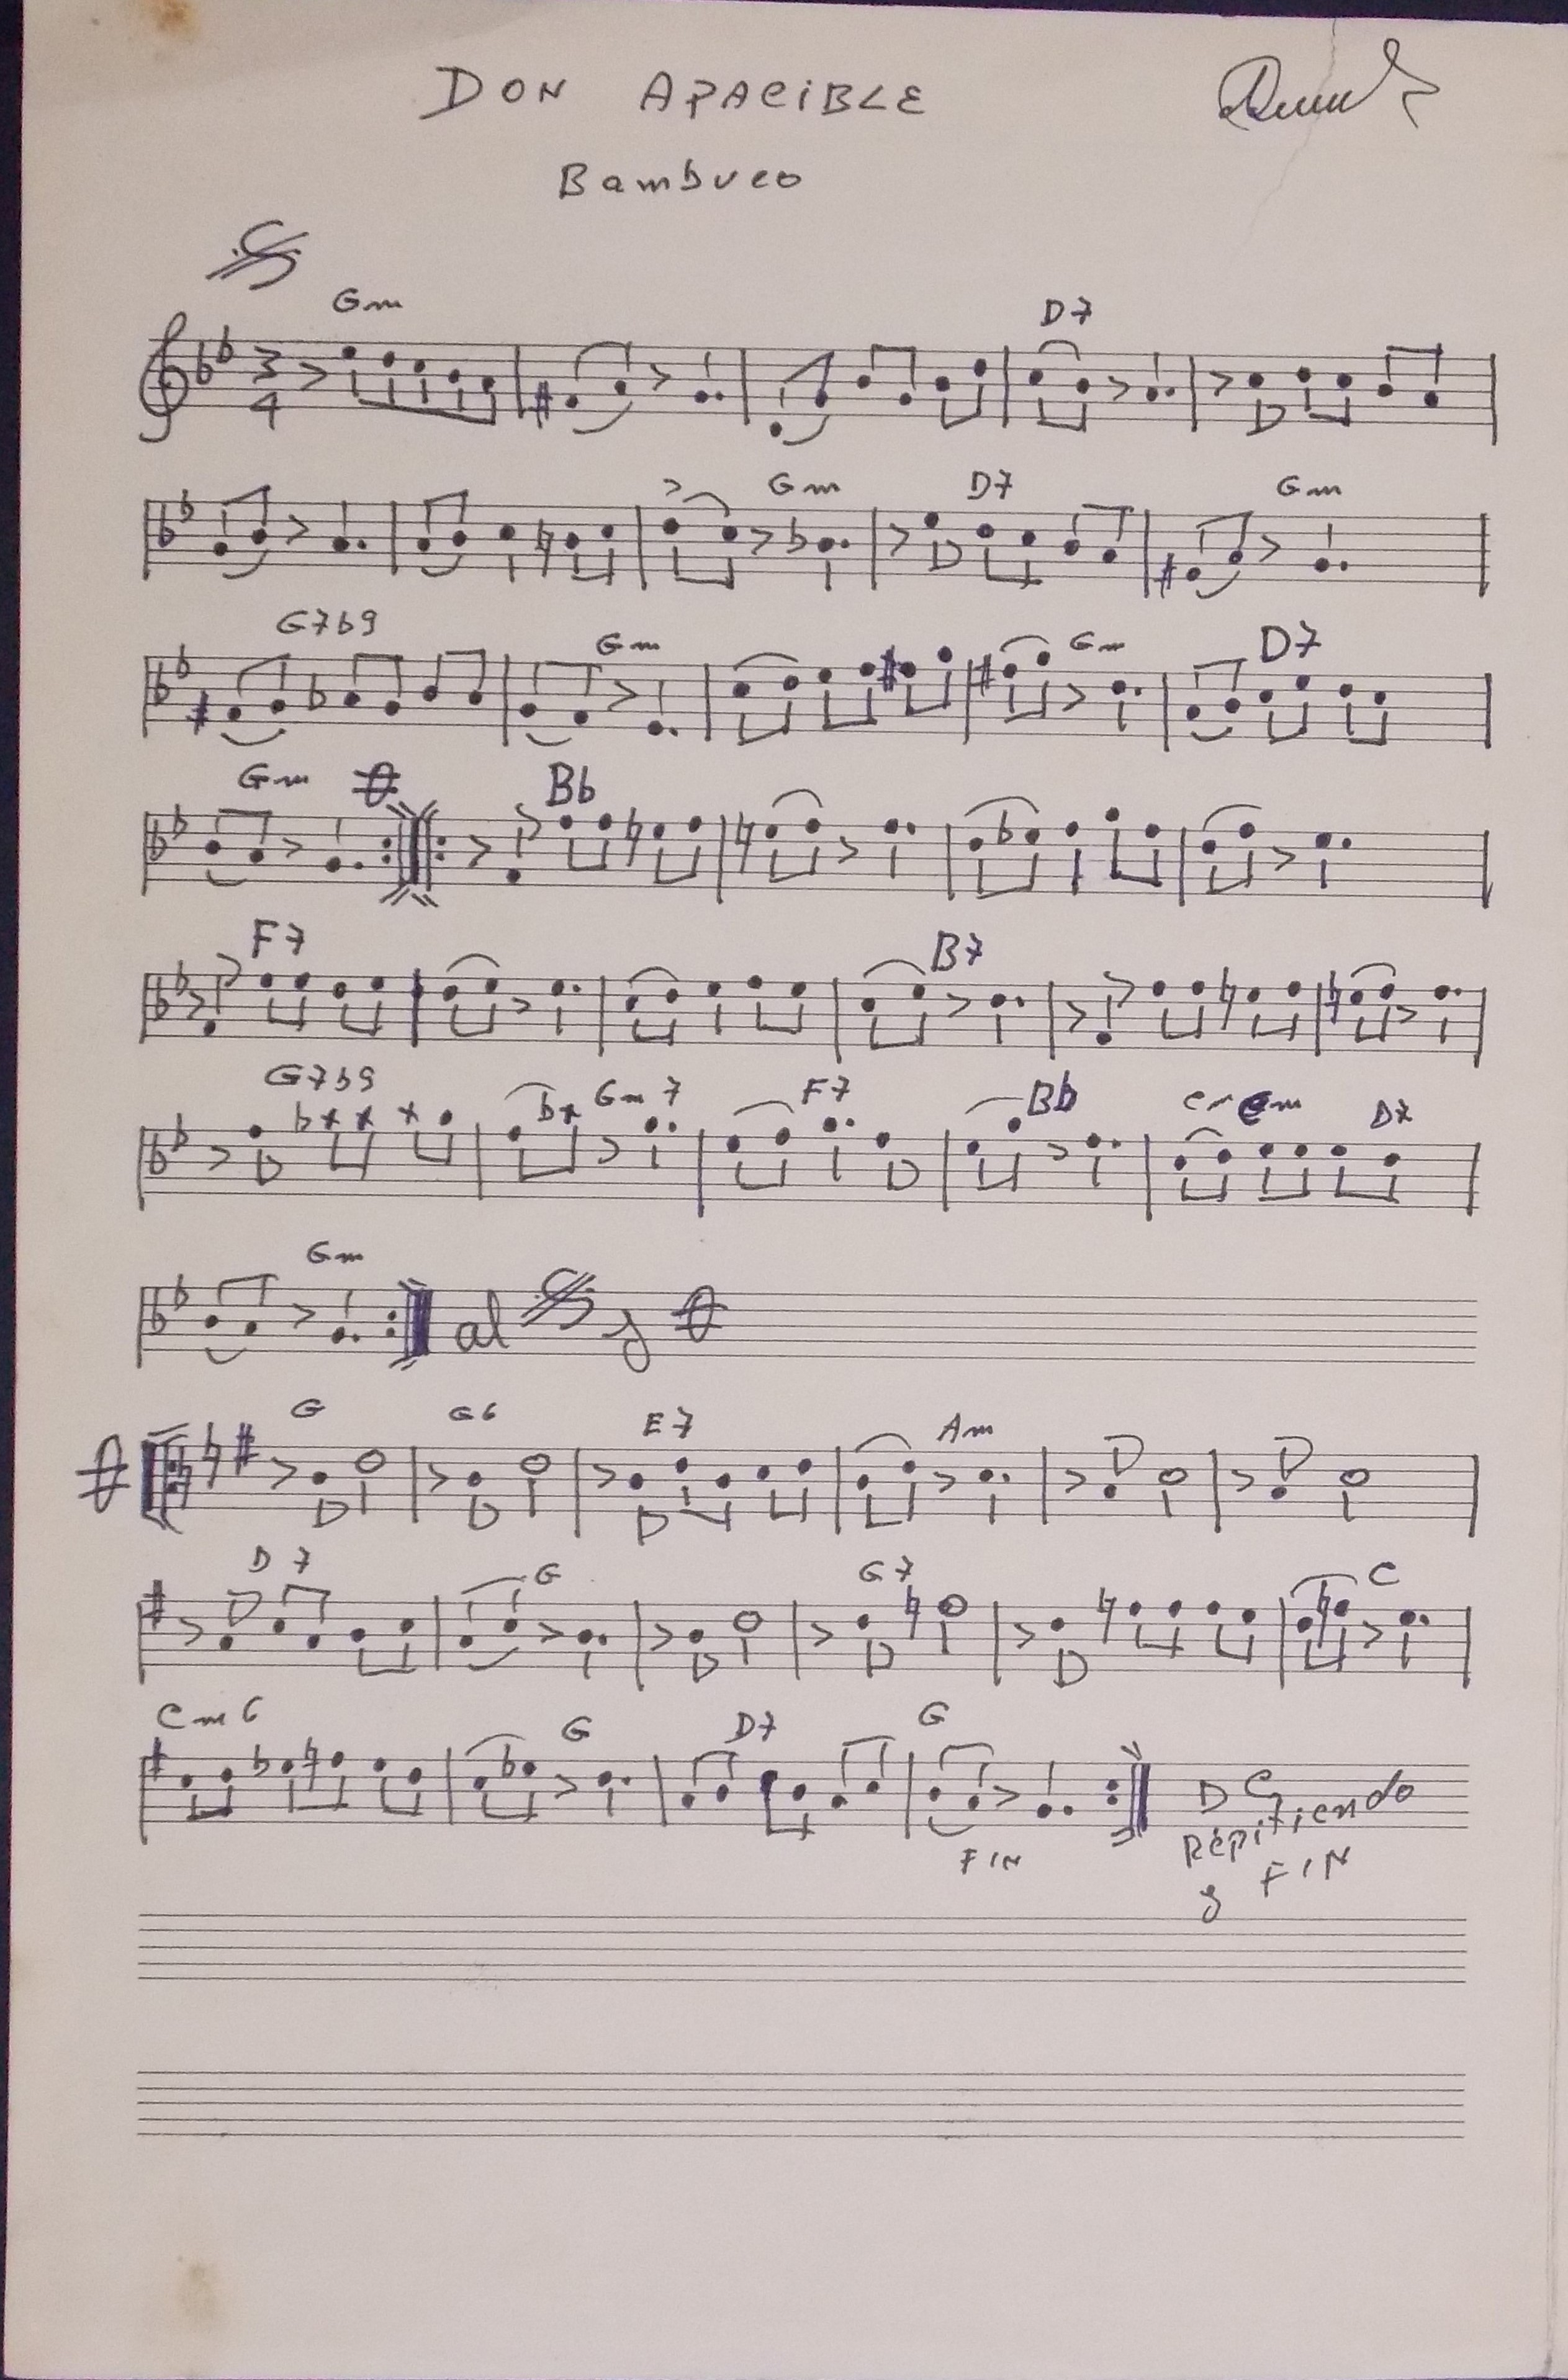 DON APACIBLE
Bambuco
Gm D7
3
4
Gm D7 Gm
G7b9 Gm Gm D7
Gm Bb
F7 B7
G7b9 Gm7 F7 Bb Cm D7
Gm
al y
G G6 E7 Am
D7 G G7 C
Cm6 G D7 G
FIN
DC
Repitiendo
y FIN